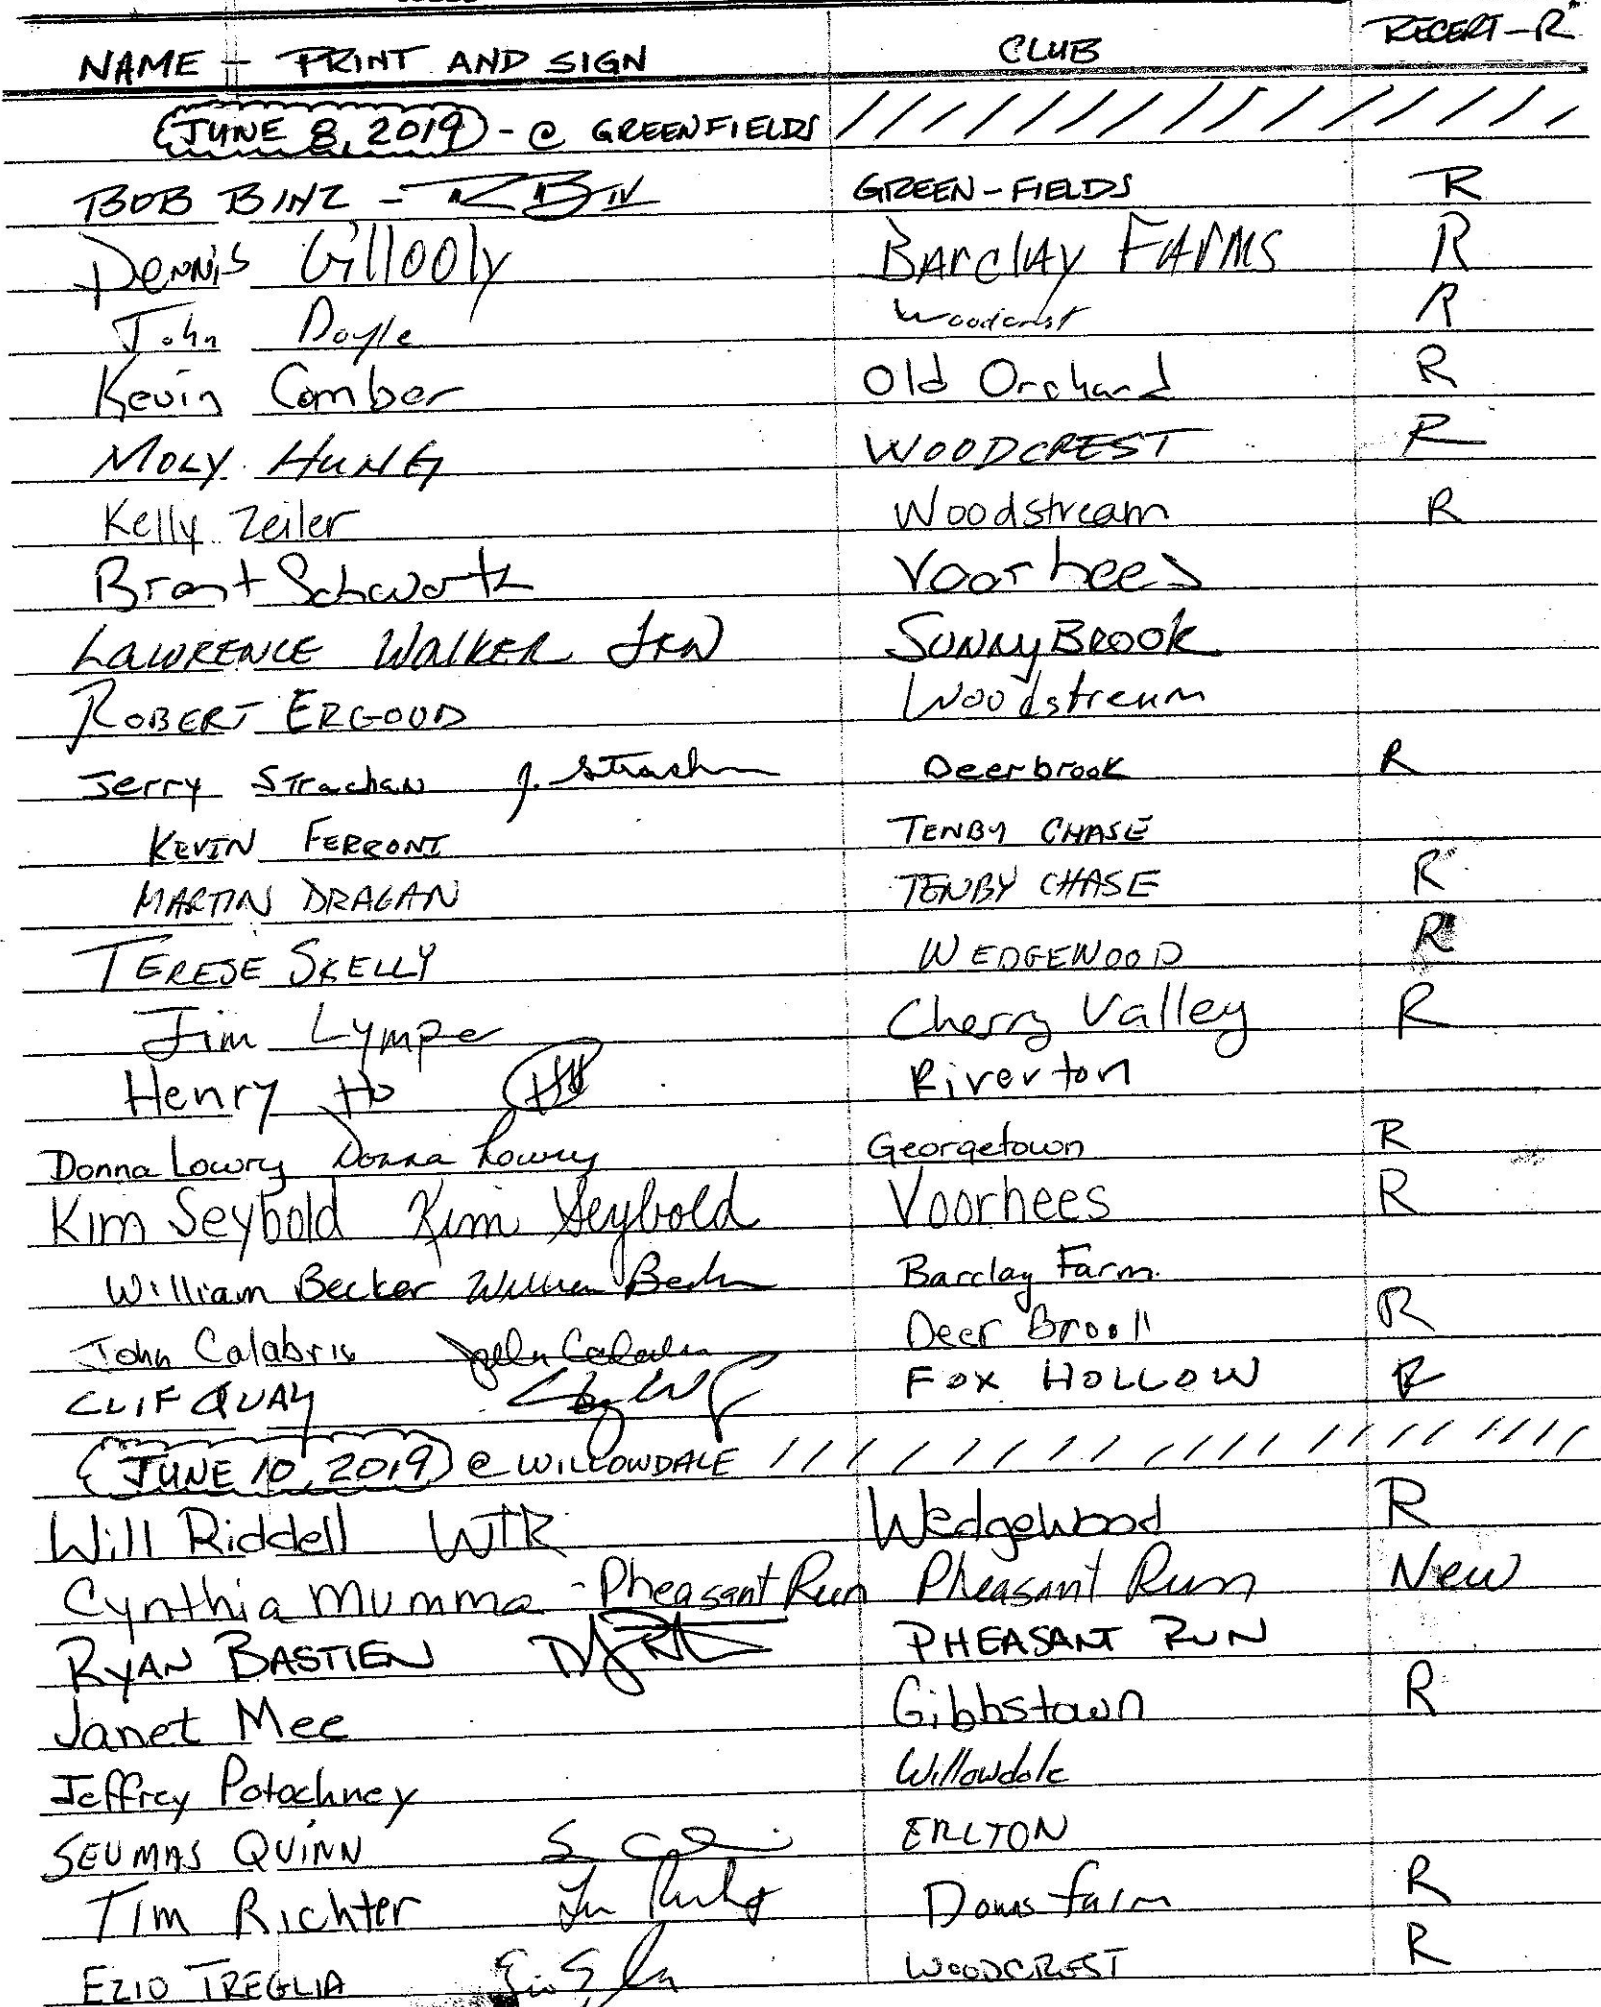 NAME - PRINT AND SIGN CLUB RECERT-R*
JUNE 8, 2019 - @ GREENFIELDS
BOB BINZ - GREEN-FIELDS R
Dennis Gillooly Barclay Farms R
John Doyle Woodcrest R
Kevin Comber Old Orchard R
MOLY HUNG WOODCREST R
Kelly Zeiler Woodstream R
Brent Schwartz Voorhees
LAWRENCE WALKER SUNNYBROOK
ROBERT ERGOUD Woodstream
Jerry Strachan J. Strachan Deerbrook R
KEVIN FERRONI TENBY CHASE
MARTIN DRAGAN TENBY CHASE R
TERESE SKELLY WEDGEWOOD R
Jim Lympe Cherry Valley R
Henry Ho HH Riverton
Donna Lowry Donna Lowry Georgetown R
Kim Seybold Kim Seybold Voorhees R
William Becker William Becker Barclay Farm
John Calabria John Calabria Deer Brook R
CLIF QUAY FOX HOLLOW R
JUNE 10, 2019 @ WILLOWDALE
Will Riddell WTR Wedgewood R
Cynthia Mumma - Pheasant Run Pheasant Run New
RYAN BASTIEN PHEASANT RUN
Janet Mee Gibbstown R
Jeffrey Potochney Willowdale
SEUMAS QUINN ERLTON
Tim Richter Downs farm R
EZIO TREGLIA WOODCREST R